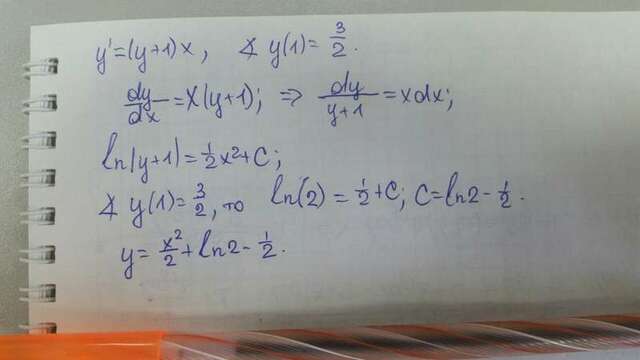 y'=(y+1)x, ∢ y(1)=3/2.
dy/dx=x(y+1); ⇒ dy/(y+1)=xdx;
ln|y+1|=1/2x²+C;
∢ y(1)=3/2, то ln(2)=1/2+C; C=ln2-1/2.
y=x²/2+ln2-1/2.